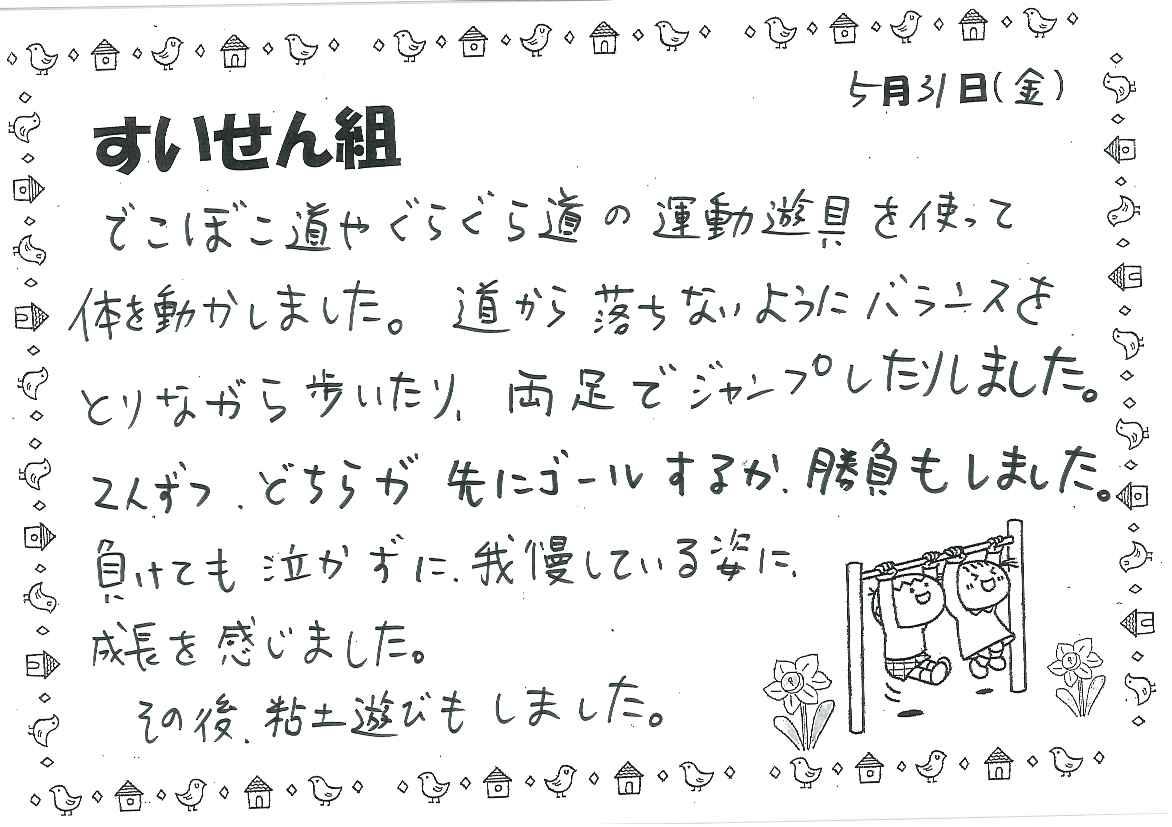 5月31日(金)
すいせん組
でこぼこ道やぐらぐら道の運動遊具を使って
体を動かしました。道から落ちないようにバランスを
とりながら歩いたり、両足でジャンプしたりしました。
2人ずつ、どちらが先にゴールするか、勝負もしました。
負けても泣かずに、我慢している姿に、
成長を感じました。
その後、粘土遊びもしました。